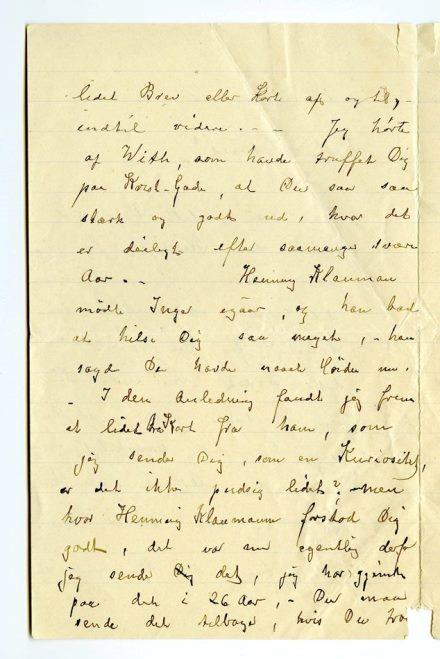 lidet Brev eller Kort af og til,
indtil videre. - - Jeg hørte
af With, som havde truffet Dig
paa Gade, at Du saa saa
stærk og godt ud, hvor det
er deiligt efter saamange svære
Aar. - - Henning Klauman
mødte Inger igaar, og han bad
at hilse Dig saa meget, - han
sagde Du havde naaet nu.
- I den Anledning fandt jeg frem
et lidet Kort fra ham, som
jeg sender Dig, som en Kuriositet,
er det ikke pudsig lidet? - men
hvor Henning Klaumann forstod Dig
godt, det var nu egentlig derfor
jeg sende Dig det, jeg har gjemt
paa det i 26 Aar, - Du maa
sende det tilbage, hvis Du